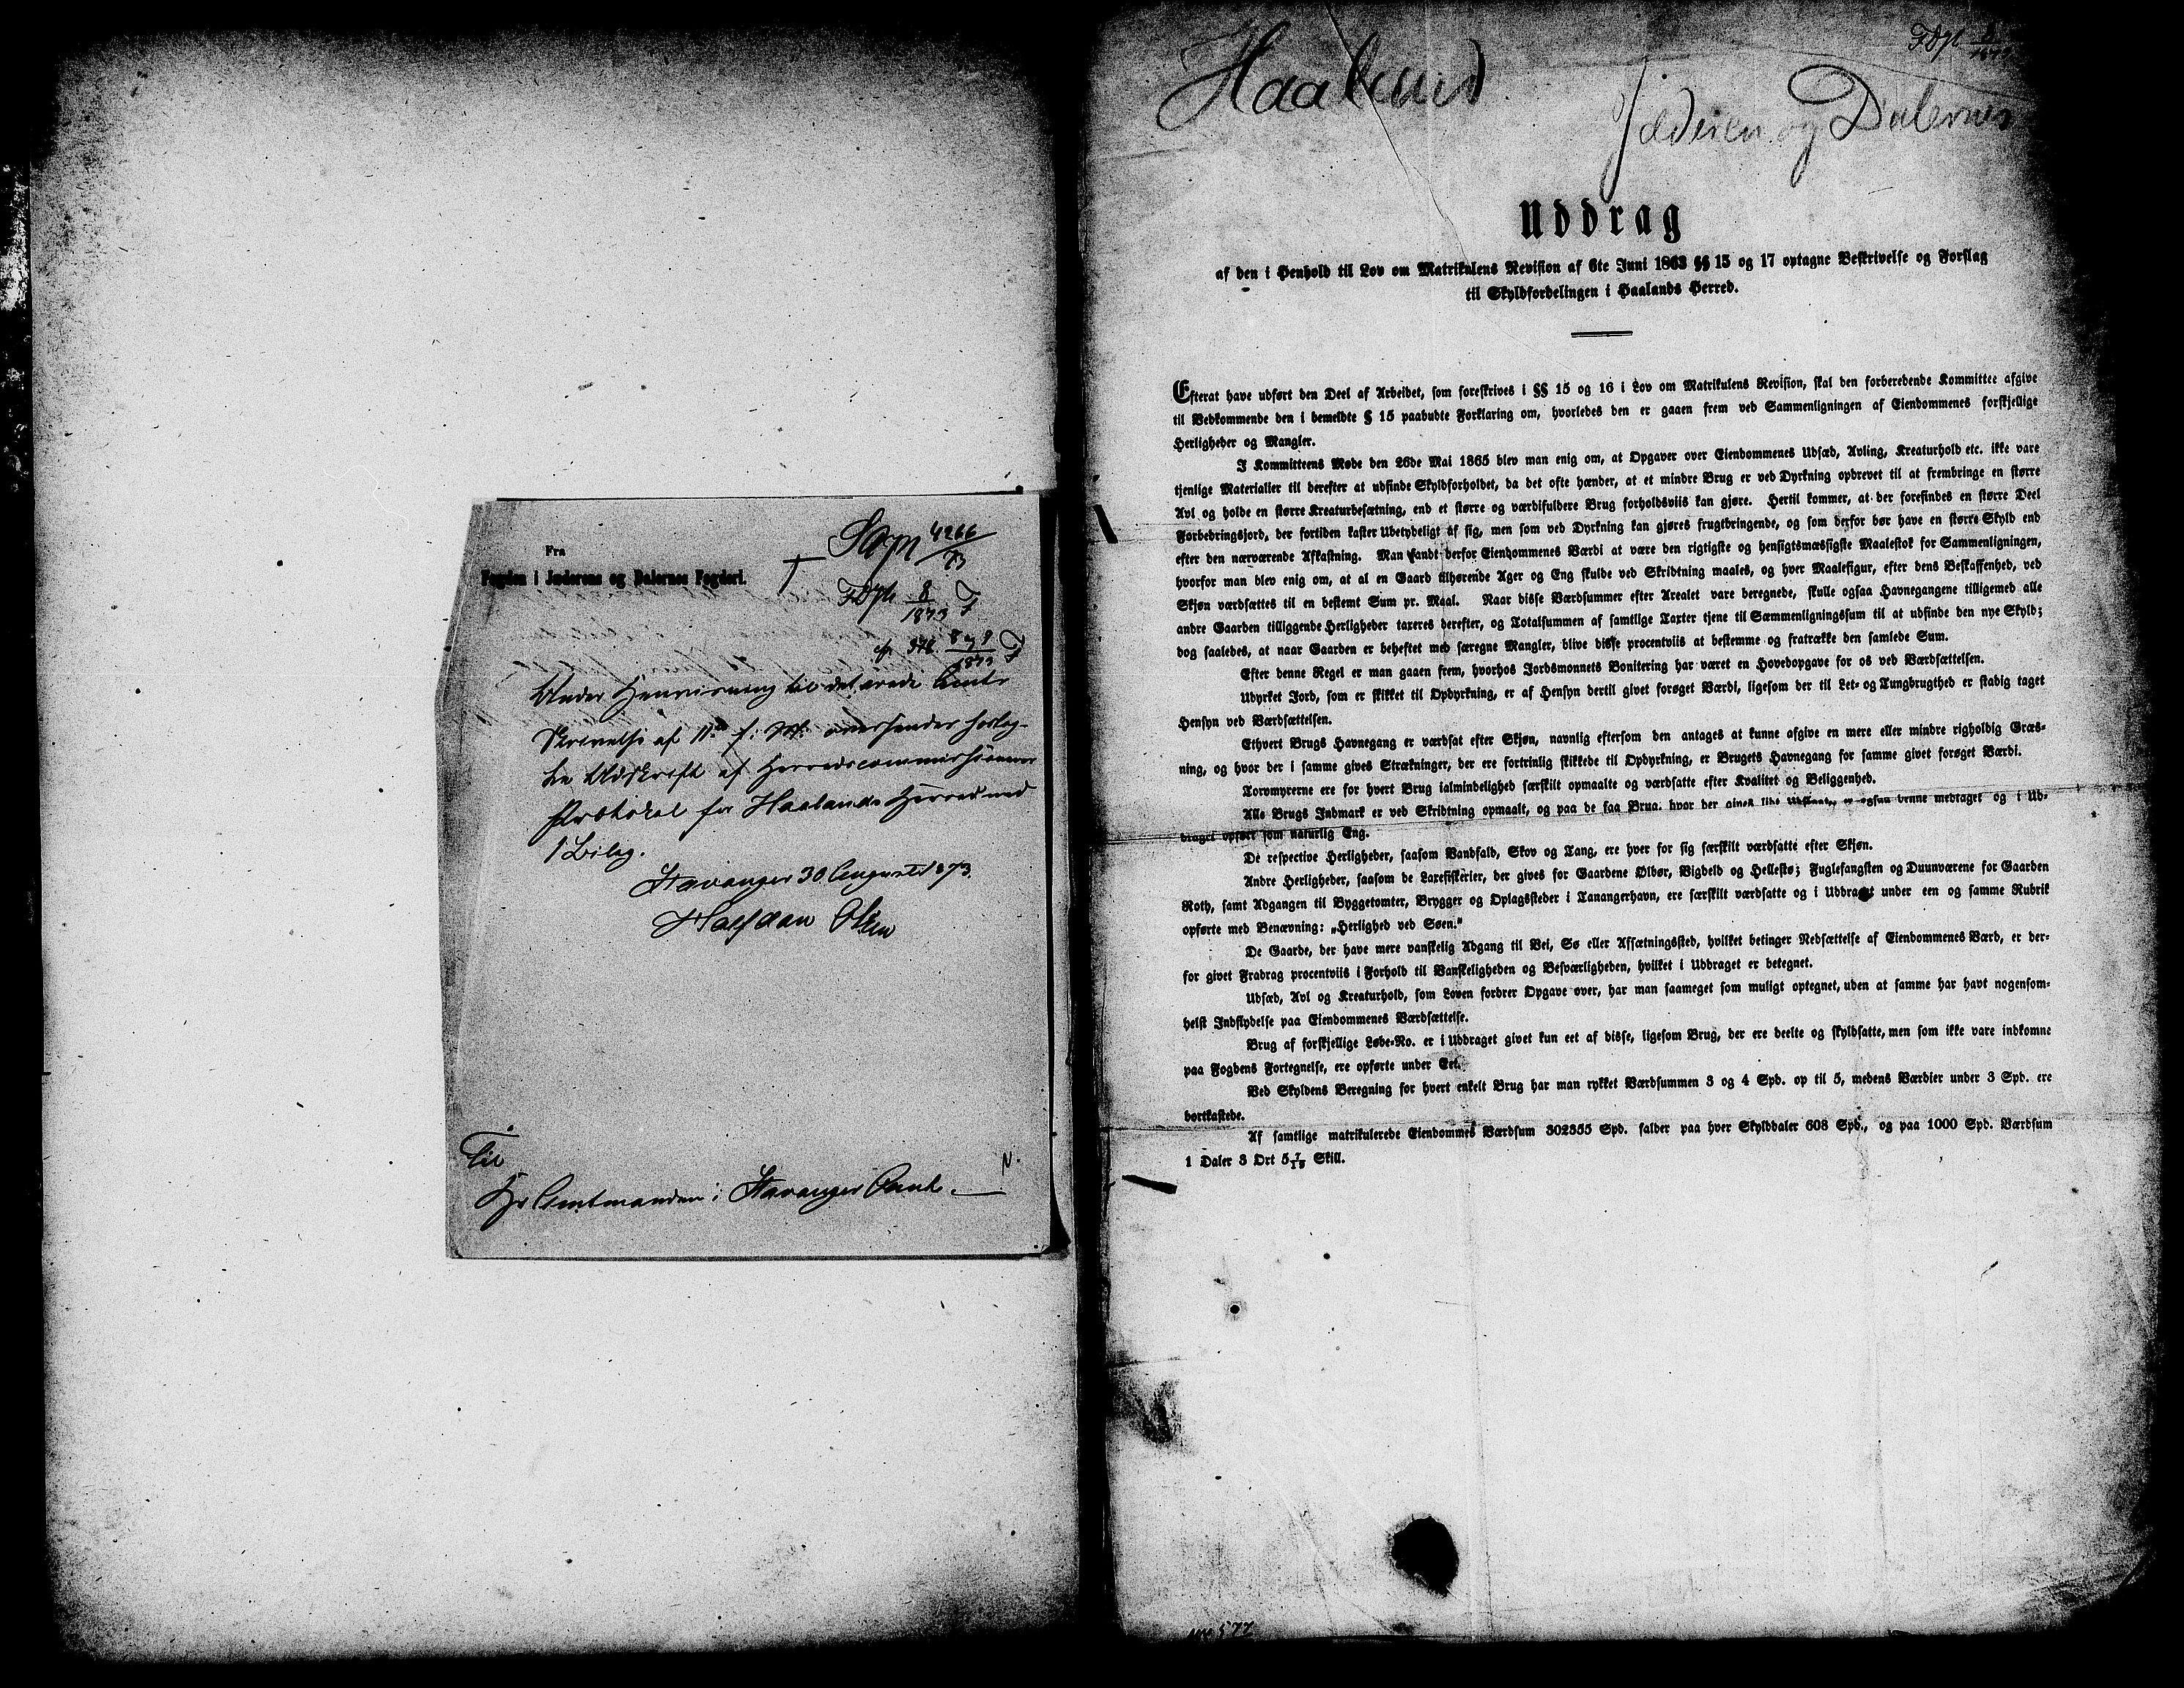 Fra
Fogden i Jæderens og Dalernes Fogderi.
4266
73
FDpt. 8
1873
8 og 9
1873
Under Henvisning til det ærede Amts
Skrivelse af 11te f. M. oversendes hoslag-
te Udskrift af Herredscommissionens
Protokol for Haalands Herred med
1 Bilag.
Stavanger 30 August 1873.
Halfdan Olsen
Til
Hr Amtmanden i Stavanger Amt.
Haaland
Jæderen og Dalernes
Uddrag
af den i Henhold til Lov om Matrikulens Revision af 6te Juni 1863 §§ 15 og 17 optagne Beskrivelse og Forslag
til Skyldfordelingen i Haalands Herred.
Efterat have udført den Deel af Arbeidet, som foreskrives i §§ 15 og 16 i Lov om Matrikulens Revision, skal den forberedende Kommittee afgive
til Vedkommende den i bemeldte § 15 paabudte Forklaring om, hvorledes den er gaaen frem ved Sammenligningen af Eiendommenes forskjellige
Herligheder og Mangler.
I Kommitteens Møde den 26de Mai 1865 blev man enig om, at Opgaver over Eiendommenes Udsæd, Avling, Kreaturhold etc. ikke vare
tjenlige Materialier til derefter at udfinde Skyldforholdet, da det ofte hænder, at et mindre Brug er ved Dyrkning opdrevet til at frembringe en større
Avl og holde en større Kreaturbesætning, end et større og værdifuldere Brug forholdsviis kan gjøre. Hertil kommer, at der forefindes en større Deel
Forbedringsjord, der fortiden kaster Ubetydeligt af sig, men som ved Dyrkning kan gjøres frugtbringende, og som derfor bør have en større Skyld end
efter den nærværende Afkastning. Man fandt derfor Eiendommenes Værdi at være den rigtigste og hensigtsmæssigste Maalestok for Sammenligningen,
hvorfor man blev enig om, at al en Gaard tilhørende Ager og Eng skulde ved Skridtning maales, og hver Maalefigur, efter dens Beskaffenhed, ved
Skjøn værdsættes til en bestemt Sum pr. Maal. Naar disse Værdsummer efter Arealet vare beregnede, skulle ogsaa Havnegangene tilligemed alle
andre Gaarden tilliggende Herligheder taxeres derefter, og Totalsummen af samtlige Taxter tjene til Sammenligningssum til at udfinde den nye Skyld;
dog saaledes, at naar Gaarden er beheftet med særegne Mangler, blive disse procentviis at bestemme og fratrække den samlede Sum.
Efter denne Regel er man gaaen frem, hvorhos Jordsmonnets Bonitering har været en Hovedopgave for os ved Værdsættelsen.
Udyrket Jord, som er skikket til Opdyrkning, er af Hensyn dertil givet forøget Værdi, ligesom der til Let- og Tungbrugthed er stadig taget
Hensyn ved Værdsættelsen.
Ethvert Brugs Havnegang er værdsat efter Skjøn, navnlig eftersom den antages at kunne afgive en mere eller mindre righoldig Græs-
ning, og hvor der i samme gives Strækninger, der ere fortrinlig skikkede til Opdyrkning, er Brugets Havnegang for samme givet forøget Værdi.
Torvmyrerne ere for hvert Brug ialmindelighed særskilt opmaalte og værdsatte efter Kvalitet og Beliggenhed.
Alle Brugs Indmark er ved Skridtning opmaalt, og paa de faa Brug, hvor der gives lidt Udslaat, er ogsaa denne medtaget og i Ud-
draget opført som naturlig Eng.
De respective Herligheder, saasom Vandfald, Skov og Tang, ere hver for sig særskilt værdsatte efter Skjøn.
Andre Herligheder, saasom de Laxefiskerier, der gives for Gaardene Ølbør, Vigdeld og Hellestø; Fuglefangsten og Duunværene for Gaarden
Roth, samt Adgangen til Byggetomter, Brygger og Oplagssteder i Tanangerhavn, ere særskilt værdsatte og i Uddraget under een og samme Rubrik
opførte med Benævning: „Herlighed ved Søen."
De Gaarde, der have mere vanskelig Adgang til Vei, Sø eller Afsætningssted, hvilket betinger Nedsættelse af Eiendommenes Værd, er der-
for givet Fradrag procentviis i Forhold til Vanskeligheden og Besværligheden, hvilket i Uddraget er betegnet.
Udsæd, Avl og Kreaturhold, som Loven fordrer Opgave over, har man saameget som muligt optegnet, uden at samme har havt nogensom-
helst Indflydelse paa Eiendommenes Værdsættelse.
Brug af forskjellige Løbe-No. er i Uddraget givet kun eet af disse, ligesom Brug, der ere deelte og skyldsatte, men som ikke vare indkomne
paa Fogdens Fortegnelse, ere opførte under Eet.
Ved Skyldens Beregning for hvert enkelt Brug har man rykket Værdsummen 3 og 4 Spd. op til 5, medens Værdier under 3 Spd. ere
bortkastede.
Af samtlige matrikulerede Eiendommes Værdsum 302355 Spd. falder paa hver Skylddaler 608 Spd., og paa 1000 Spd. Værdsum
1 Daler 3 Ort 5 7/19 Skill.